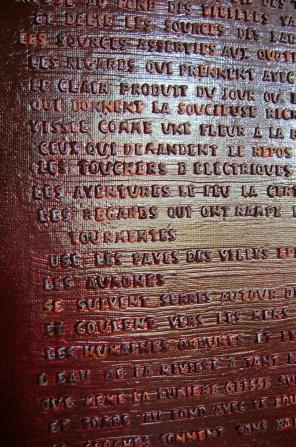 AU FOND DES VIEILLES
SE DELIE LES SOURCES DES
LES SOURCES ASSERTIES AUX
LES REGARDS QUI PRENNENT AVEC
LE CLAIR PRODUIT DU JOUR OU
QUI DONNENT LA SOUCIEUSE RICH
VISSEE COMME UNE FLEUR A LA
CEUX QUI DEMANDENT LE REPOS
LES TOUCHERS D ELECTRIQUES
LES AVENTURES LE FEU LA CERT
LES REGARDS QUI ONT RAMPE
TOURMENTES
USE LES PAVES DES VILLES
LES AUMONES
SE SUIVENT SERRES AUTOUR DE
ET COULENT VERS LES MERS
LES HUMAINES ORDURES ET
L EAU DE LA RIVIERE A TANT
QUE MEME LA LUMIERE GLISSE
ET TOMBE AU FOND AVEC LE
CLOCHES SONNENT SANS